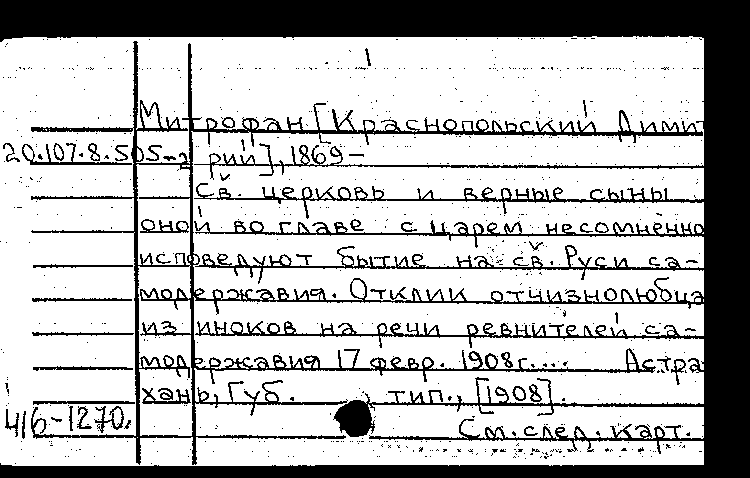 1
Митрофан [Краснопольский Димит
20.107.8.505-2 рий], 1869-
Св. церковь и верные сыны
оной во главе с царем несомненно
исповедуют бытие на св. Руси са-
модержавия. Отклик отчизнолюбца
из иноков на речи ревнителей са-
модержавия 17 февр. 1908г.... Астра
хань, Губ. тип., [1908].
416-1270. См. след. карт.